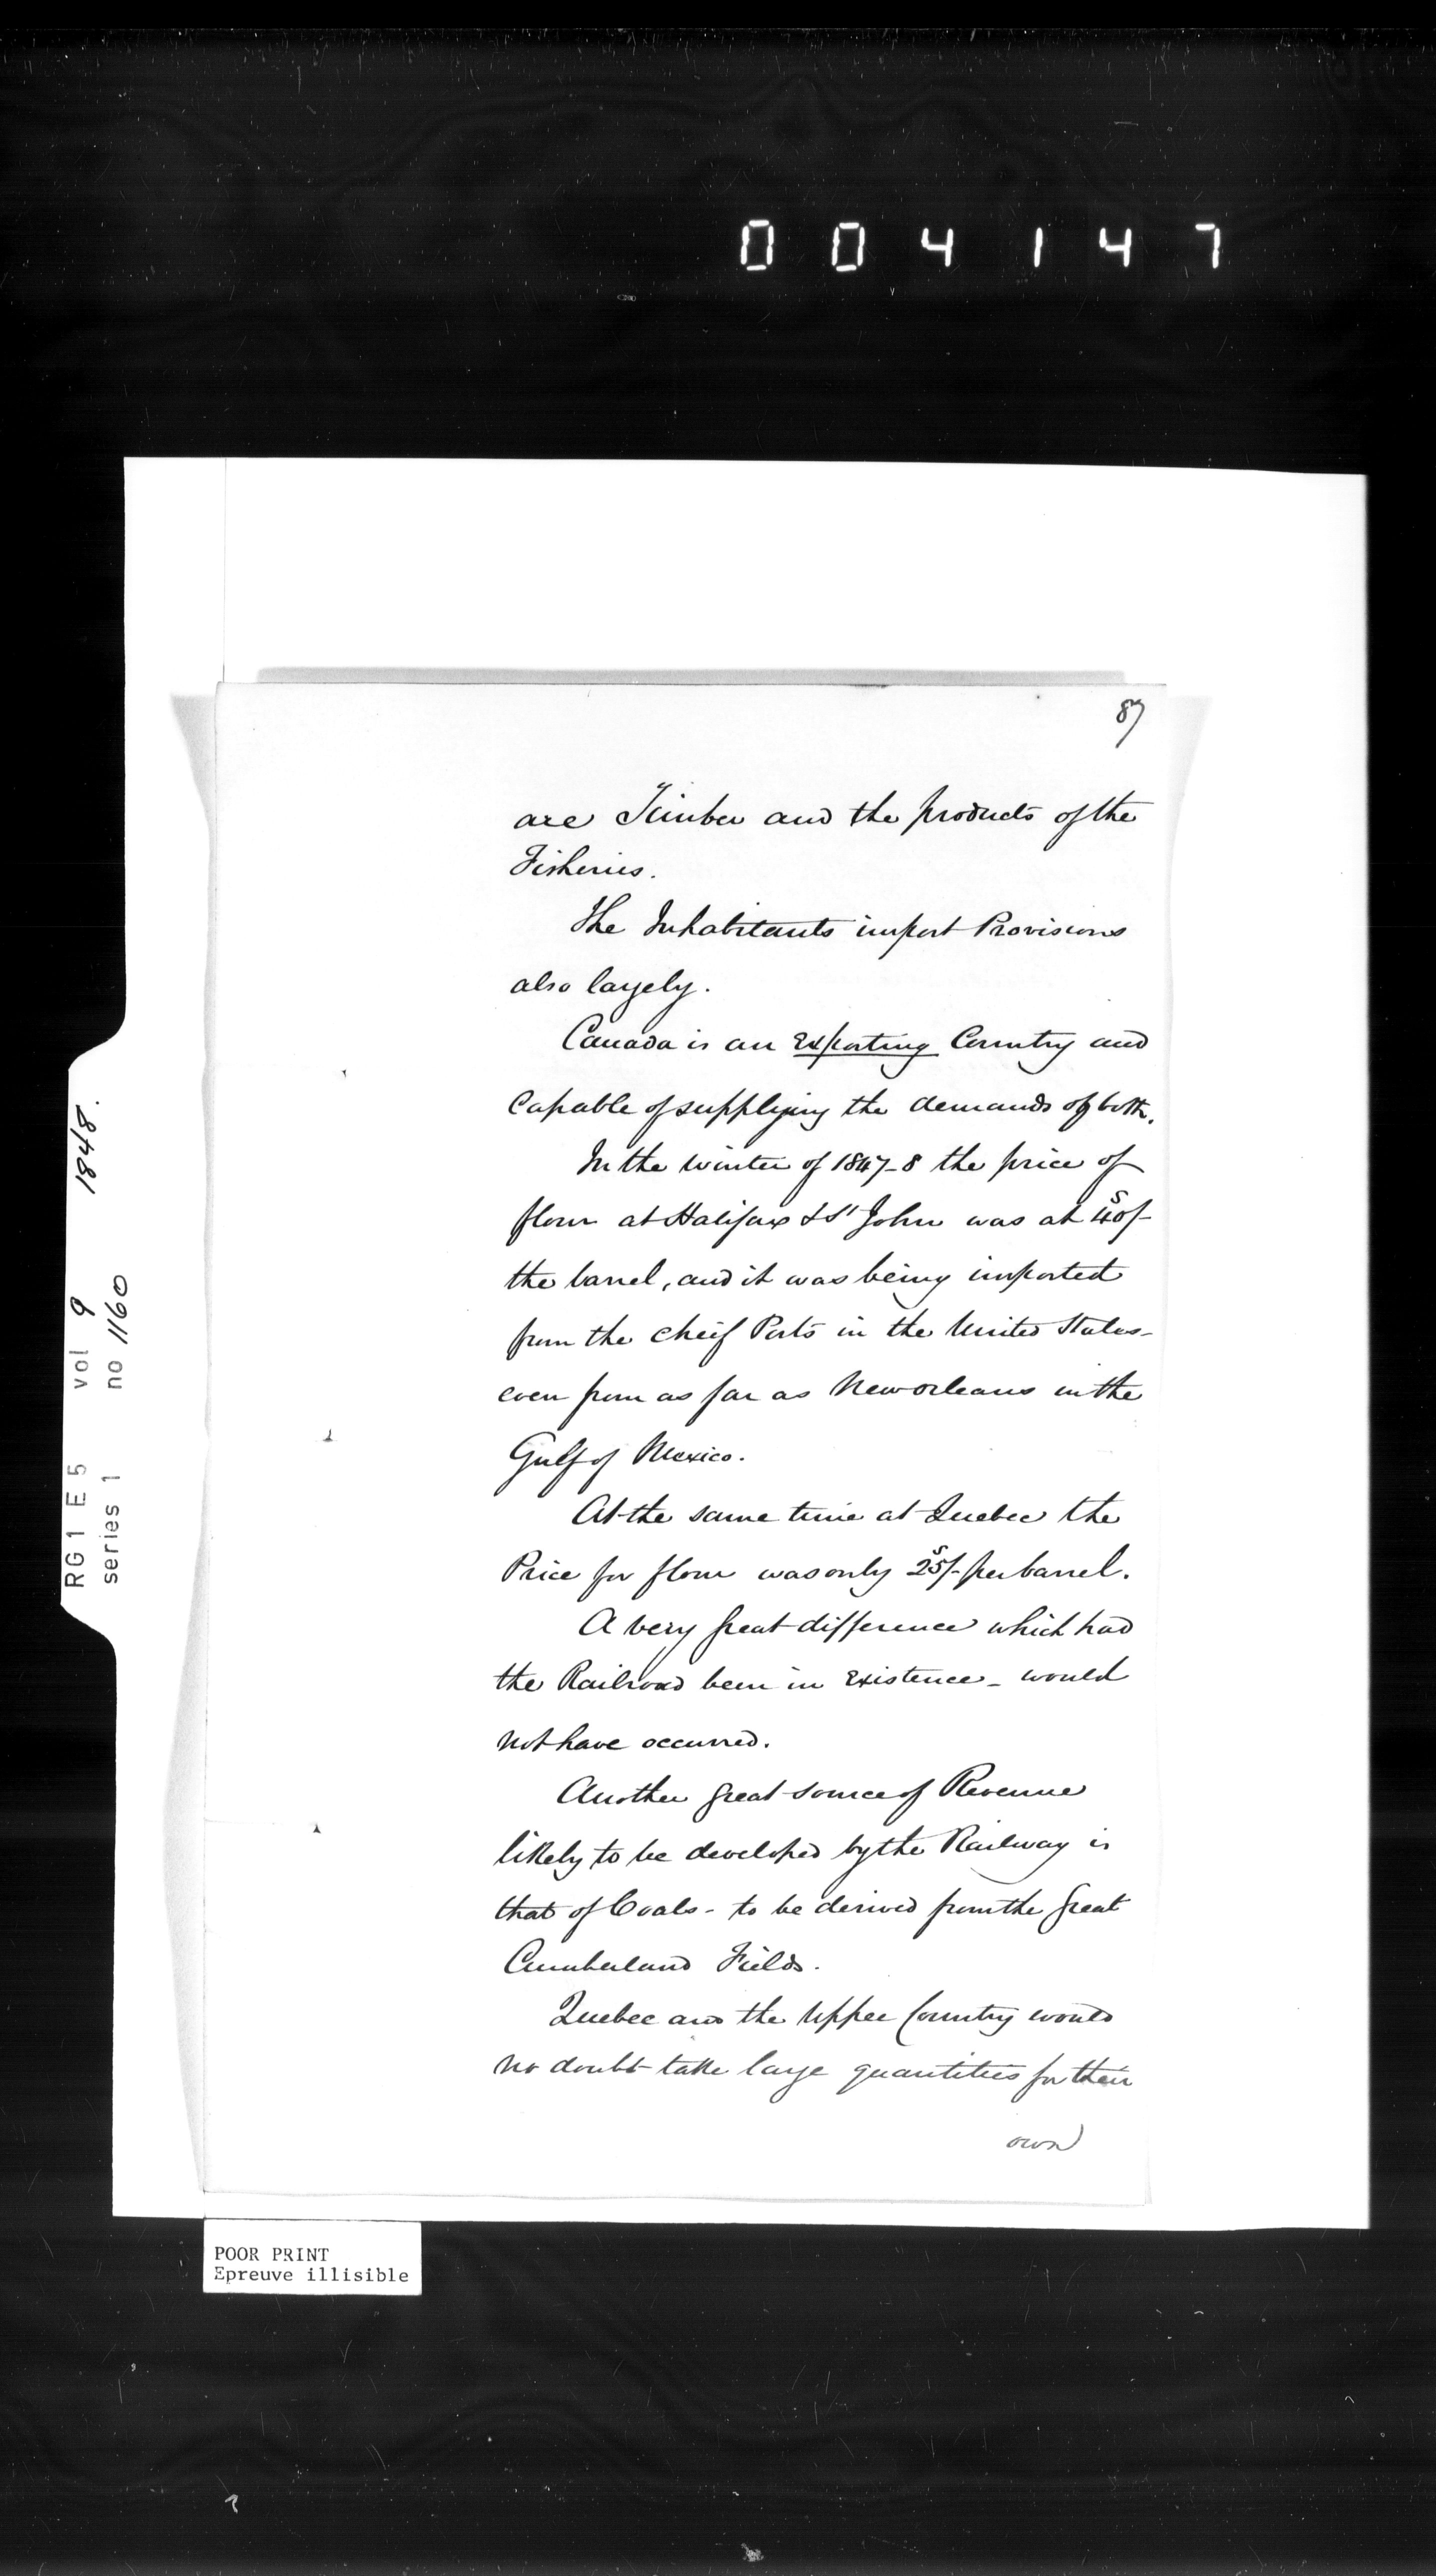 004147
87
are Timber and the products of the
Fisheries.
The Inhabitants import Provisions
also largely.
Canada is an Exporting Country and
Capable of supplying the demands of both.
In the winter of 1847-8 the price of
flour at Halifax & St John was at 40s/-
the barrel, and it was being imported
from the cheif Ports in the United States-
even from as far as New Orleans in the
Gulf of Mexico.
At the same time at Quebec the
Price for flour was only 25s/- per barrel.
A very great difference which had
the Railroad been in Existence - would
not have occurred.
Another great source of Revenue
likely to be developed by the Railway is
that of Coals - to be derived from the great
Cumberland Fields.
Quebec and the Upper Country would
no doubt take large quantities for their
own
RG1 E5 vol 9 1848.
series 1 no 1160
POOR PRINT
Epreuve illisible